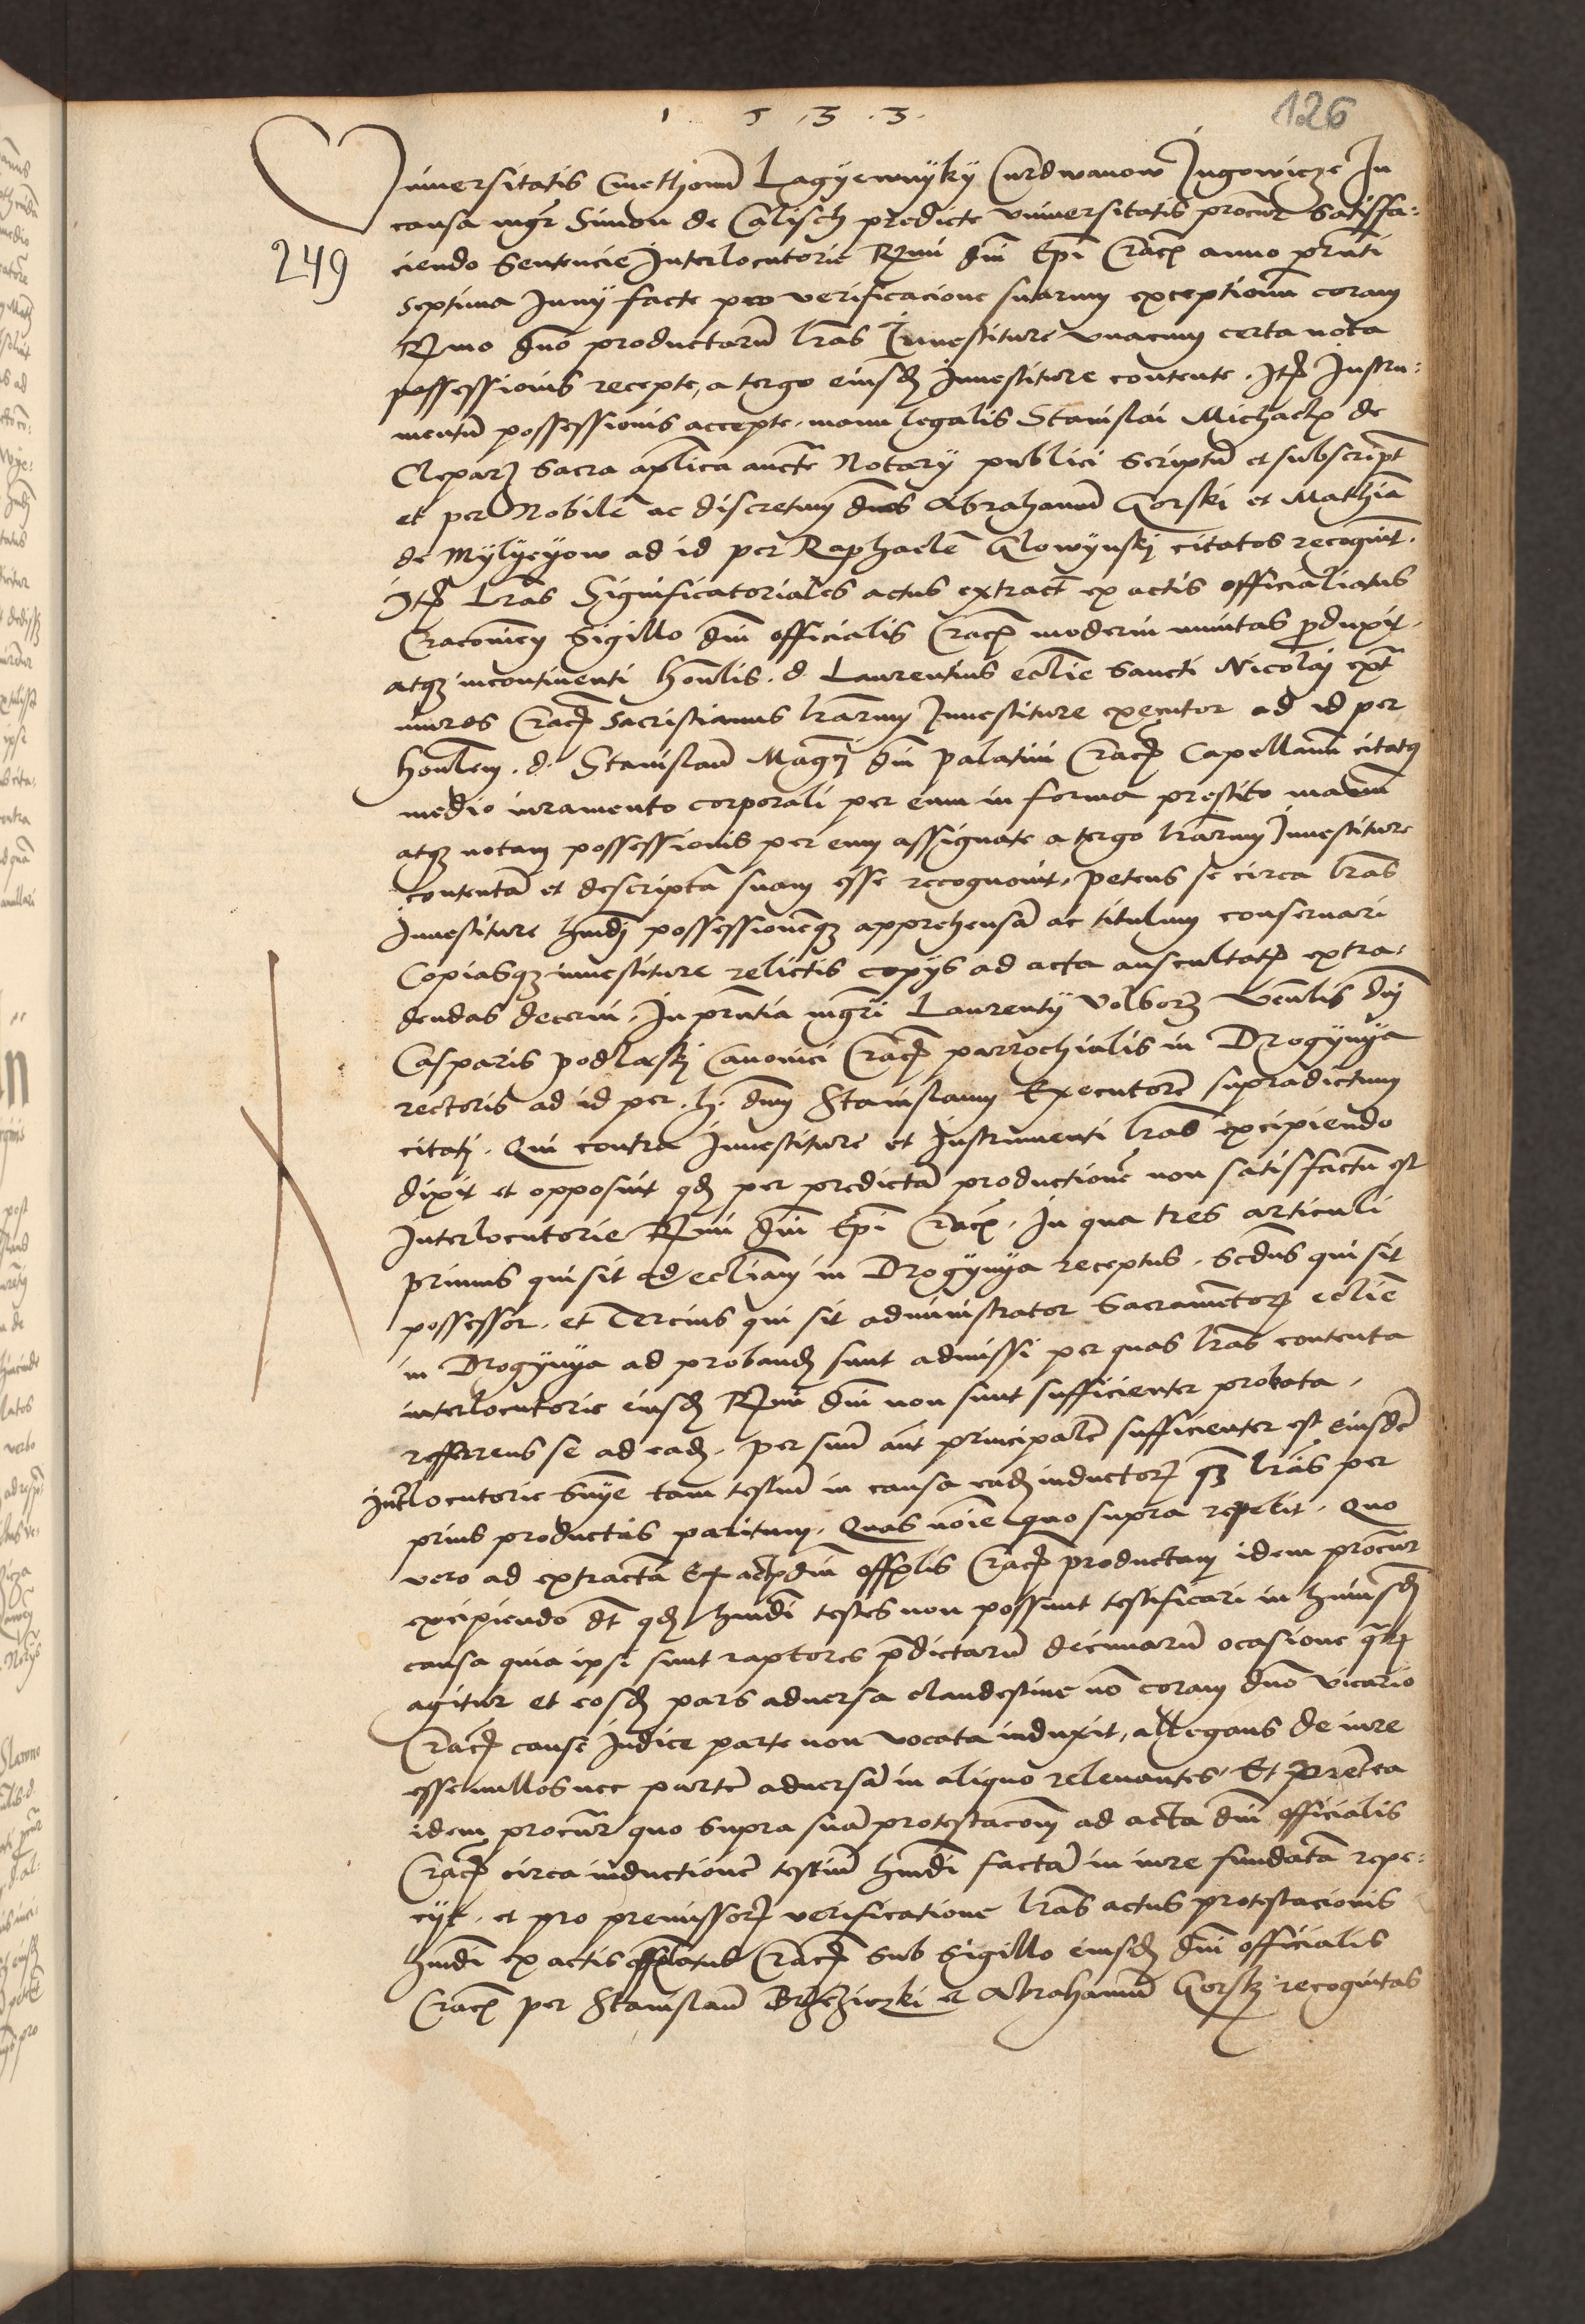 1 5 3 3
126
Universitatis Cmethonũ Lagyewnyky Curdwanow Jugowicze In
causa mgr Simon de Calisch predicte universitatis procur Satisffa:
249
ciendo Sentencie Interlocutorie Rmi dni Epi Crac anno prnti
septima Iuny facte pro verificacione suarum exceptionũ coram
Rmo dno productarũ lras Investiture unacum certa nota
possessionis recepte, a tergo eiusd Investiture contente. Itẽ Instru:
mentũ possessionis accepte. manu legalis Stanislai Michaelis de
Clepar Sacra aplica aucte Notary publici scriptũ et subscript
et per Nobilẽ ac discretum dnos Abrahamũ Gorski et Mathiã
de Mylyeyow ad id per Raphaelẽ Glowynski citatos recognit.
Itẽ Lras Significatoriales actus extract ex actis officialatus
Cracovien Sigillo dni officialis Crac moderni munitas produxit.
atqz incontinenti honlis. d. Laurentius eclie Sancti Nicolai ext
muros Crac Sacristianus lrarum Investiture executor ad id per
honlem. d. Stanislaũ Magci dni palatini Crac Capellanũ citatus
medio iuramento corporali per eum in forma prestito manũ
atqz notam possessionis per eum assignate a tergo lrarum Investiture
contentã et descriptã suam esse recognovit. petens se circa lras
Investiture hmdi possessionemqz apprehensã ac titulum conservari
Copiasqz investiture relictis copys ad acta auscultatis extra:
dendas decerni. In prntia mgri Laurenty Volborz venlis dni
Casparis podlaski Canonici Crac parrochialis in Drogynya
rectoris ad id per. h. dnm Stanislaum Executorẽ supradictum
citati. Qui contra Investiture et Instrumenti lras excipiendo
dixit et opposuit qd per predictã productionẽ non satisfactũ est
Interlocutorie Rmi dni Epi Crac. In qua tres articuli
primus qui sit ad ecliam in Drogynya receptus. Scdus qui sit
possessor. et Tercius qui sit administrator Sacramentorz eclie
in Drogynya ad proband sunt admissi per quas lras contenta
interlocutorie eiusd Rmi dni non sunt sufficienter probata.
refferens se ad ead. per suũ aut principalẽ sufficienter est eiusdẽ
Intrlocutorie Snye tam testiũ in causa ead inductorz qz lras per
prius productas paritum. Quas noie quo supra repetit. Quo
vero ad extractã Ex actis dni offlis Crac productam idem procur
excipiendo dt qd hmdi testes non possunt testificari in huiusd
causa quia ipsi sunt raptores pdictarũ decimarũ ocasione qrz
agitur et eosd pars adversa clandestine nõ coram dno vicario
Crac cause Iudice parte non vocata induxit, allegans de iure
esse nullos nec partẽ adversã in aliquo relevantes. Et preterea
idem procur quo supra suã protestacom ad acta dni officialis
Crac circa inductionẽ testiũ hmdi factã in iure fundatã repe:
cyt. et pro premissorz verificatione lras actus protestacionis
hmdi ex actis offlatus Crac sub Sigillo eiusd dni officialis
Crac per Stanislaũ Brzeziczki et Abrahamũ Gorski recognitas